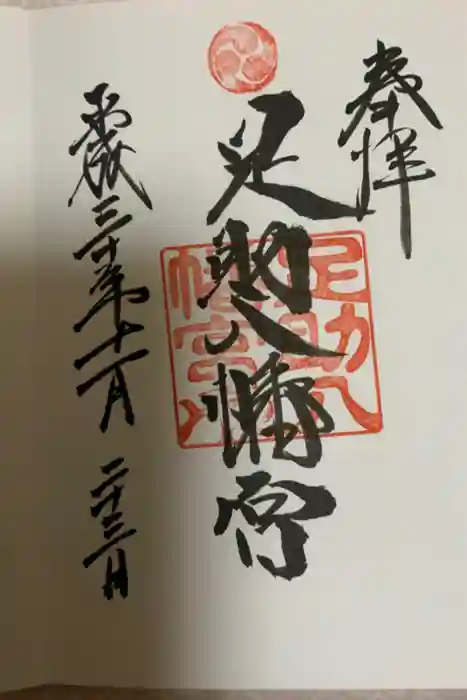 奉拝
足助八幡宮
足助八
幡宮
平成三十年十一月二十三日